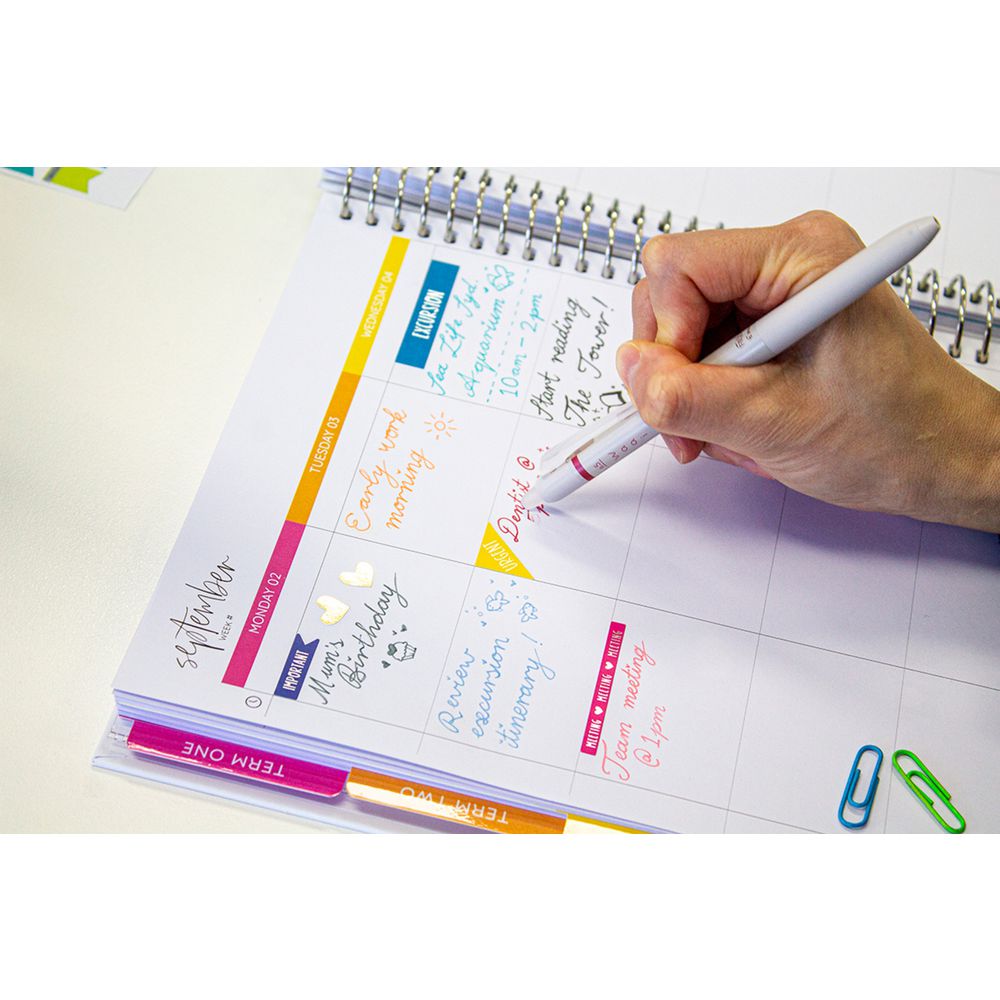 september
WEEK #
MONDAY 02
IMPORTANT
Mum's
Birthday
Review
excursion
itinerary!
MEETING ♥ MEETING ♥ MEETING
Team meeting
@ 1pm
TUESDAY 03
Early work
morning
URGENT
Dentist @
WEDNESDAY 04
EXCURSION
Sea Life Syd.
Aquarium
10am - 2pm
Start reading
The Tower!
TERM ONE
TERM TWO